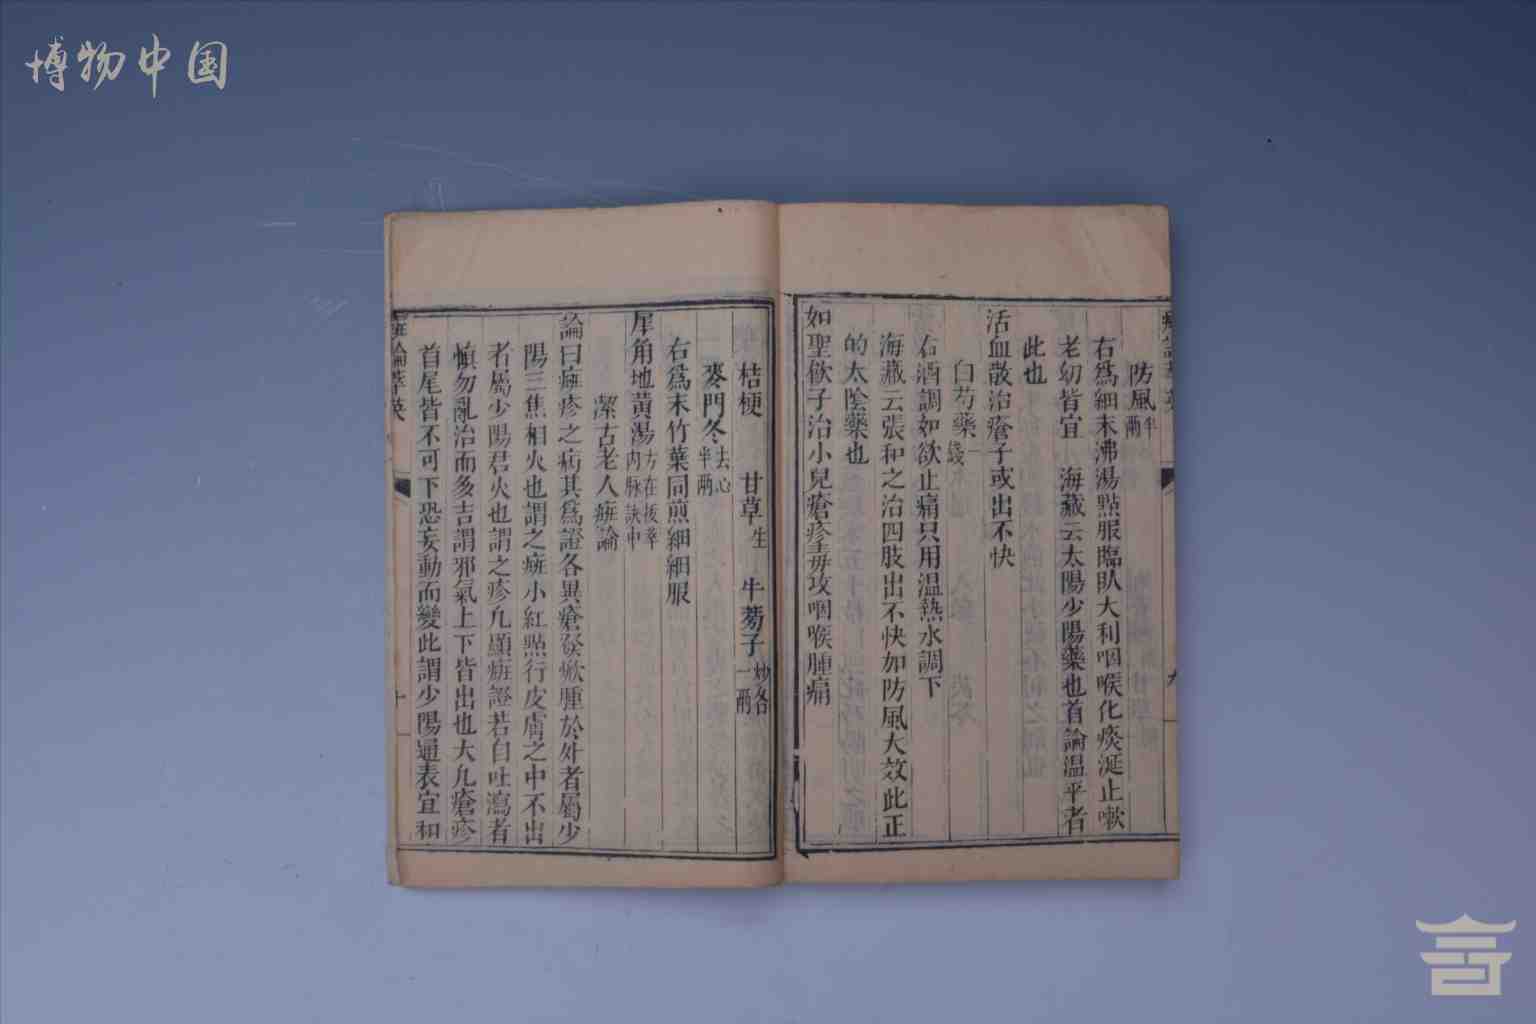 博物中国
防風半兩
右爲細末沸湯點服臨臥大利咽喉化痰涎止嗽
老幼皆宜　海藏云太陽少陽藥也首論温平者
此也
活血散治瘡子或出不快
白芍藥一錢
右酒調如欲止痛只用温熱水調下
海藏云張和之治四肢出不快加防風大效此正
的太陰藥也
如聖飲子治小兒瘡疹毒攻咽喉腫痛
桔梗　甘草生　牛蒡子炒各一兩
麥門冬去心半兩
右爲末竹葉同煎細細服
犀角地黃湯方在拔萃内脉訣中
潔古老人癍論
論曰癍疹之病其爲證各異瘡發焮腫於外者屬少
陽三焦相火也謂之癍小紅點行皮膚之中不出
者屬少陽君火也謂之疹凢顯癍證若自吐瀉者
慎勿亂治而多吉謂邪氣上下皆出也大凢瘡疹
首尾皆不可下恐妄動而變此謂少陽通表宜和
癍論萃英
十